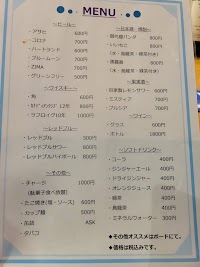 MENU
～ビール～
・アサヒ 600円
・コロナ 700円
・ハートランド 600円
・ブルームーン 700円
・ZIMA 700円
・グリーンフリー 500円
～ウイスキー～
・角 600円
12年 800円
・ラフロイグ10年 1000円
～レッドブル～
・レッドブル 500円
・レッドブルサワー 800円
・レッドブルハイボール 800円
～その他～
・チャージ 1000円
(駄菓子食べ放題)
・たこ焼き(塩・ソース) 600円
・カップ麺 500円
・缶詰 ASK
・タバコ
～日本酒・焼酎～
800円
・いいちこ 600円
(水・烏龍茶・緑茶付き)
・黒霧島 600円
(水・烏龍茶・緑茶付き)
・日本製レモンサワー 600円
・ミスティア 700円
・プルシア 700円
～ワイン～
・グラス 600円
・ボトル 1800円
～ソフトドリンク～
・コーラ 400円
・ジンジャエール 400円
・ドライジンジャー 400円
・オレンジジュース 400円
・緑茶 400円
・烏龍茶 400円
・ミネラルウォーター 300円
◆その他オススメはボードにて。
◆価格は税込みです。